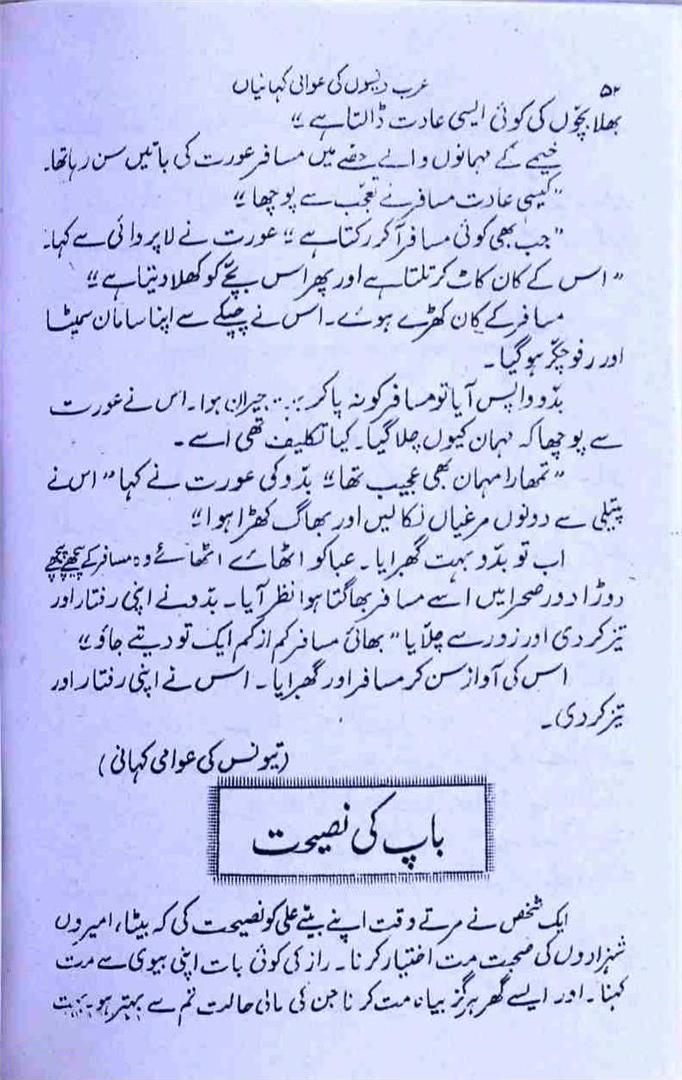 ۵۲ عرب دیسوں کی عوامی کہانیاں
بھلا بچّوں کی کوئی ایسی عادت ڈالتا ہے“
خیمے کے مہمانوں والے حصّے میں مسافر عورت کی باتیں سن رہا تھا۔
”کیسی عادت مسافر نے تعجّب سے پوچھا“
”جب بھی کوئی مسافر آ کر رکتا ہے“ عورت نے لاپروائی سے کہا۔
”اس کے کان کاٹ کر تلتا ہے اور پھر اس بچّے کو کھلا دیتا ہے“
مسافر کے کان کھڑے ہوے۔ اس نے چپکے سے اپنا سامان سمیٹا
اور رفو چکّر ہو گیا۔
بدّو واپس آیا تو مسافر کو نہ پا کر بہت حیران ہوا۔ اس نے عورت
سے پوچھا کہ مہمان کیوں چلا گیا۔ کیا تکلیف تھی اسے۔
”تمھارا مہمان بھی عجیب تھا“ بدّو کی عورت نے کہا ”اس نے
پتیلی سے دونوں مرغیاں نکالیں اور بھاگ کھڑا ہوا“
اب تو بدّو بہت گھبرایا۔ عبا کو اٹھاے اٹھائے وہ مسافر کے پیچھے پیچھے
دوڑا دور صحرا میں اسے مسافر بھاگتا ہوا نظر آیا۔ بدّو نے اپنی رفتار اور
تیز کر دی اور زور سے چلّایا ”بھائی مسافر کم از کم ایک تو دیتے جاؤ“
اس کی آواز سن کر مسافر اور گھبرایا۔ اس نے اپنی رفتار اور
تیز کر دی۔
(تیونس کی عوامی کہانی)
باپ کی نصیحت
ایک شخص نے مرتے وقت اپنے بیٹے علی کو نصیحت کی کہ بیٹا، امیروں
شہزادوں کی صحبت مت اختیار کرنا۔ راز کی کوئی بات اپنی بیوی سے مت
کہنا۔ اور ایسے گھر ہرگز بیاہ مت کرنا جن کی مالی حالت تم سے بہتر ہو۔ بہت